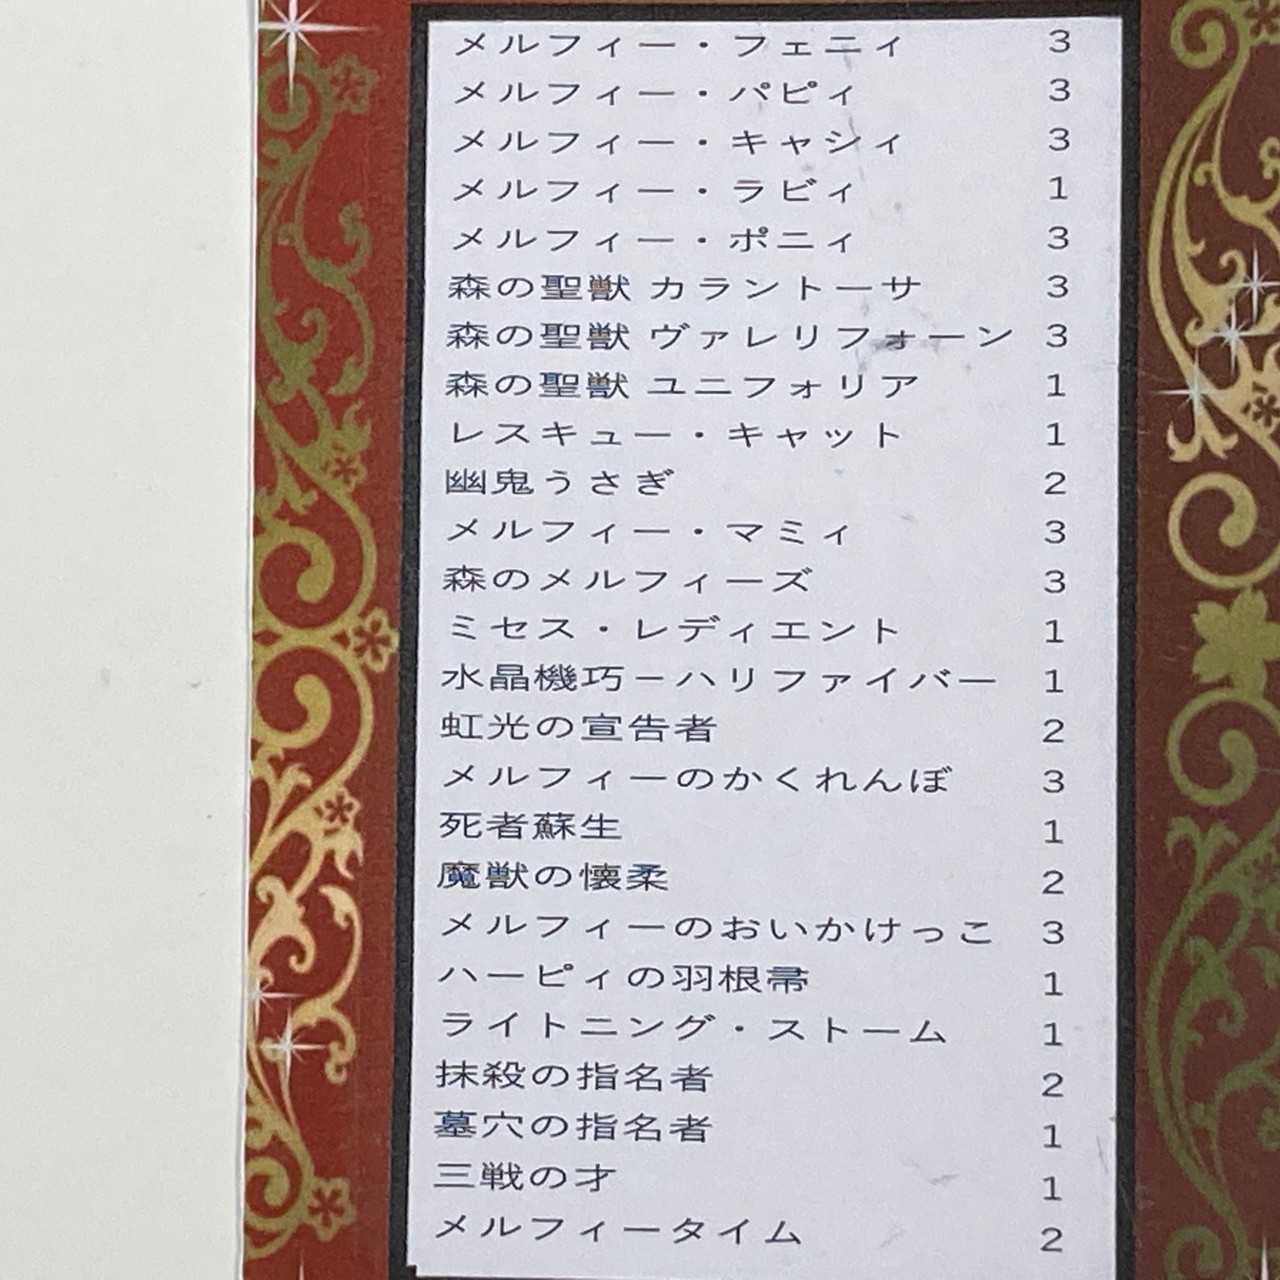 メルフィー・フェニィ 3
メルフィー・パピィ 3
メルフィー・キャシィ 3
メルフィー・ラビィ 1
メルフィー・ポニィ 3
森の聖獣 カラントーサ 3
森の聖獣 ヴァレリフォーン 3
森の聖獣 ユニフォリア 1
レスキュー・キャット 1
幽鬼うさぎ 2
メルフィー・マミィ 3
森のメルフィーズ 3
ミセス・レディエント 1
水晶機巧－ハリファイバー 1
虹光の宣告者 2
メルフィーのかくれんぼ 3
死者蘇生 1
魔獣の懐柔 2
メルフィーのおいかけっこ 3
ハーピィの羽根帚 1
ライトニング・ストーム 1
抹殺の指名者 2
墓穴の指名者 1
三戦の才 1
メルフィータイム 2